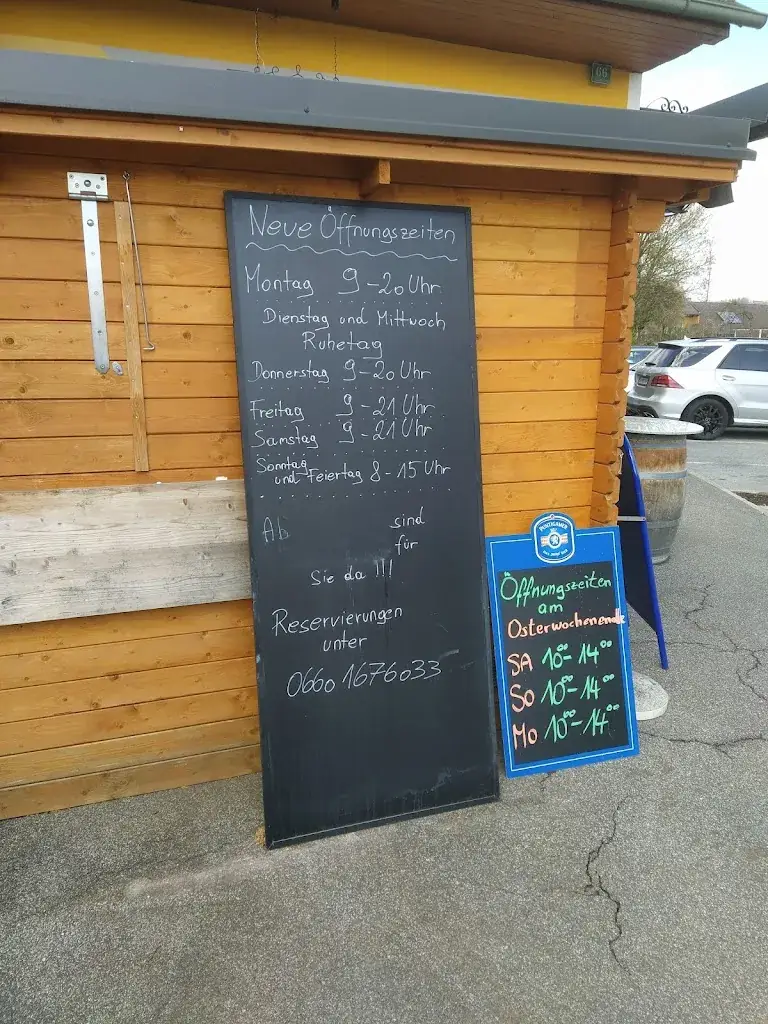 66
Neue Öffnungszeiten
Montag 9-20 Uhr
Dienstag und Mittwoch
Ruhetag
Donnerstag 9-20 Uhr
Freitag 9-21 Uhr
Samstag 9-21 Uhr
Sonntag
und Feiertag 8-15 Uhr
Ab sind
für
Sie da !!!
Reservierungen
unter
0660 1676033
PUNTIGAMER
Öffnungszeiten
am
Osterwochenende
SA 10⁰⁰-14⁰⁰
So 10⁰⁰-14⁰⁰
Mo 10⁰⁰-14⁰⁰